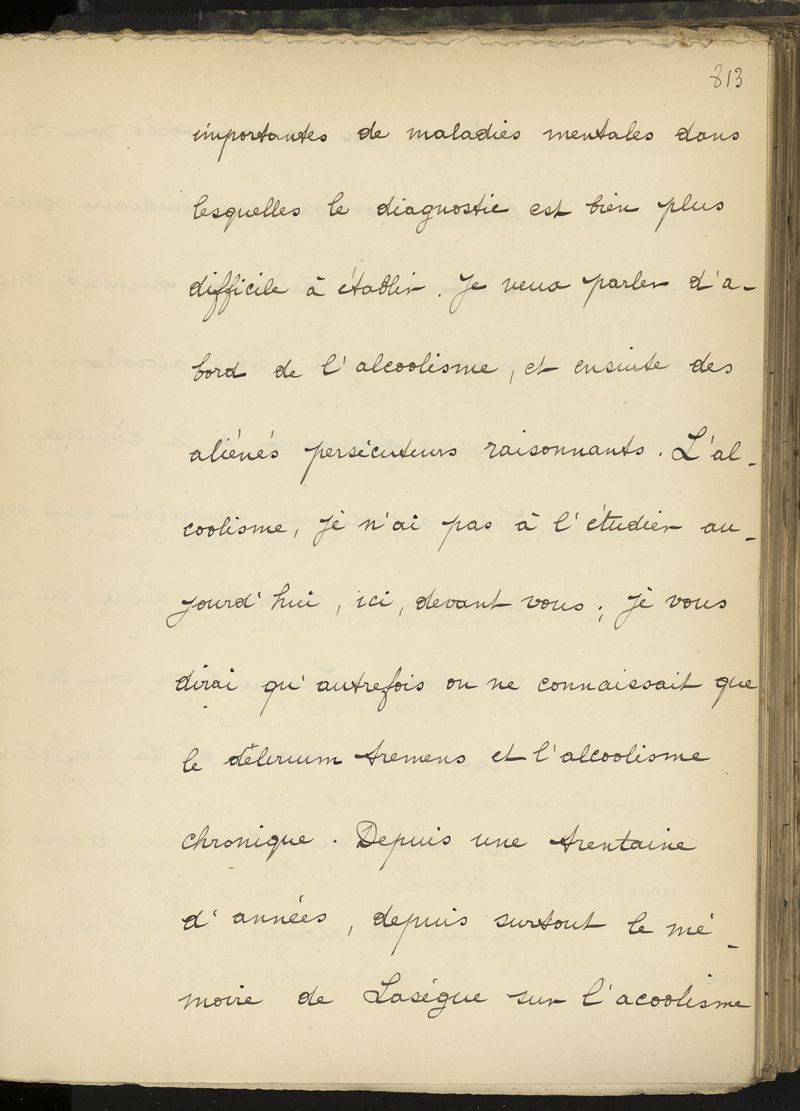 813
importantes de maladies mentales dans
lesquelles le diagnostic est bien plus
difficile à établir. Je veux parler d'a-
bord de l'alcoolisme, et ensuite des
aliénés persécuteurs raisonnants. L'al-
coolisme, je n'ai pas à l'étudier au-
jourd'hui, ici, devant vous; je vous
dirai qu'autrefois on ne connaissait que
le délirium tremens et l'alcoolisme
chronique. Depuis une trentaine
d'années, depuis surtout le mé-
moire de Lasègue sur l'acoolisme